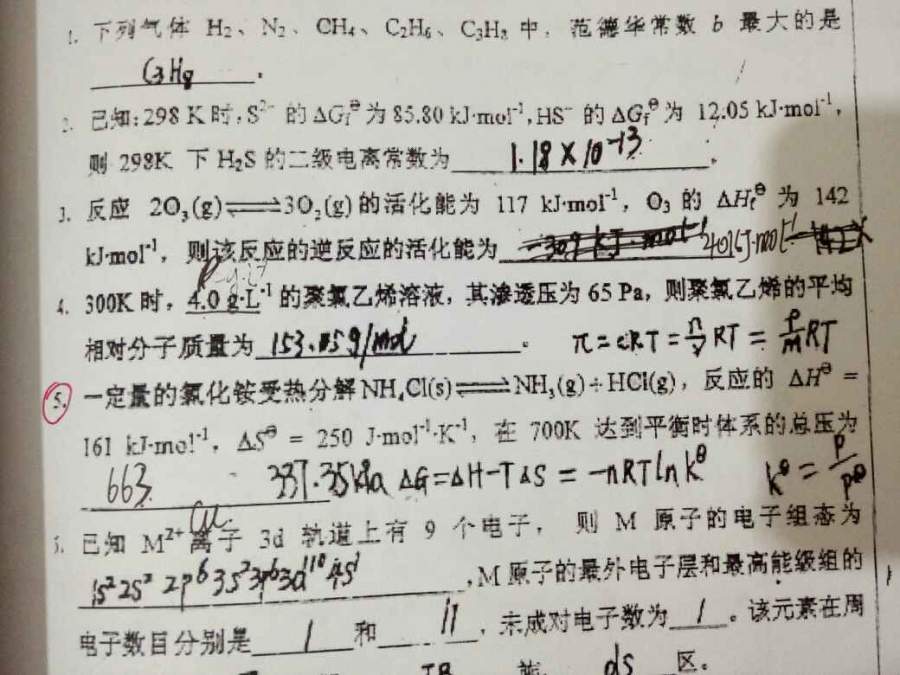 1. 下列气体 H₂、N₂、CH₄、C₂H₆、C₃H₈ 中，范德华常数 b 最大的是
C₃H₈ 。
2. 已知:298 K 时,S²⁻ 的 ΔGf^θ 为 85.80 kJ·mol⁻¹,HS⁻ 的 ΔGf^θ 为 12.05 kJ·mol⁻¹,
则 298K 下 H₂S 的二级电离常数为 1.18×10⁻¹³ 。
3. 反应 2O₃(g)⇌3O₂(g) 的活化能为 117 kJ·mol⁻¹，O₃ 的 ΔHf^θ 为 142
kJ·mol⁻¹，则该反应的逆反应的活化能为 401kJ·mol⁻¹
4. 300K 时，4.0 g·L⁻¹ 的聚氯乙烯溶液，其渗透压为 65 Pa，则聚氯乙烯的平均
相对分子质量为 153.45g/mol 。 π=cRT=n/v RT=ρ/M RT
5. 一定量的氯化铵受热分解 NH₄Cl(s)⇌NH₃(g)+HCl(g)，反应的 ΔH^θ =
161 kJ·mol⁻¹，ΔS^θ = 250 J·mol⁻¹·K⁻¹，在 700K 达到平衡时体系的总压为
663. 337.35kPa ΔG=ΔH-TΔS=-nRTlnK^θ K^θ=P/P^θ
Cu
已知 M²⁺ 离子 3d 轨道上有 9 个电子， 则 M 原子的电子组态为
1s²2s² 2p⁶3s²3p⁶3d¹⁰4s¹ ,M 原子的最外电子层和最高能级组的
电子数目分别是 1 和 11 ，未成对电子数为 1 。该元素在周
IB 族 ds 区。